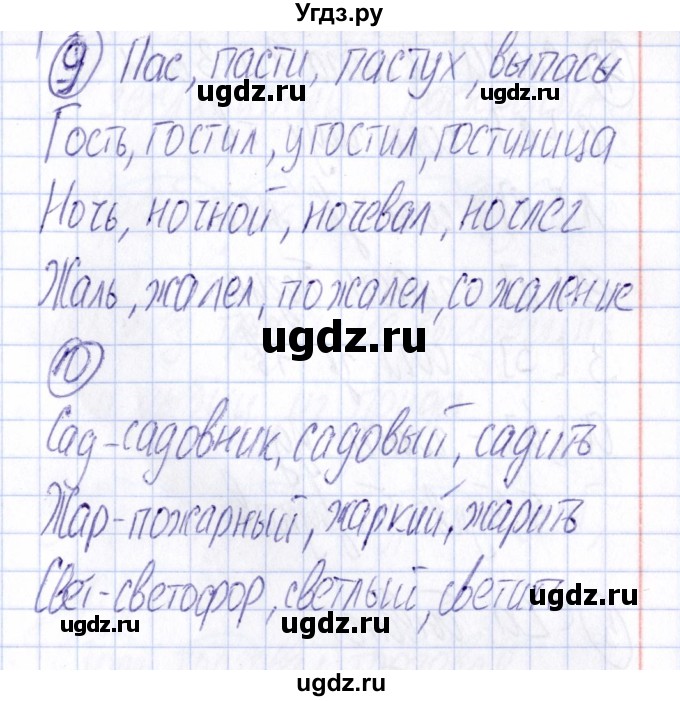 Угдз.ру
9 Пас, пасти, пастух, выпасы
ugdz.ru ugdz.ru
Гость, гостил, угостил, гостиница
Ночь, ночной, ночевал, ночлег
Жаль, жалел, пожалел, сожаление
ugdz.ru
10
Сад-садовник, садовый, садить
Жар-пожарный, жаркий, жарить
Свет-светофор, светлый, светить
ugdz.ru ugdz.ru
ugdz.ru